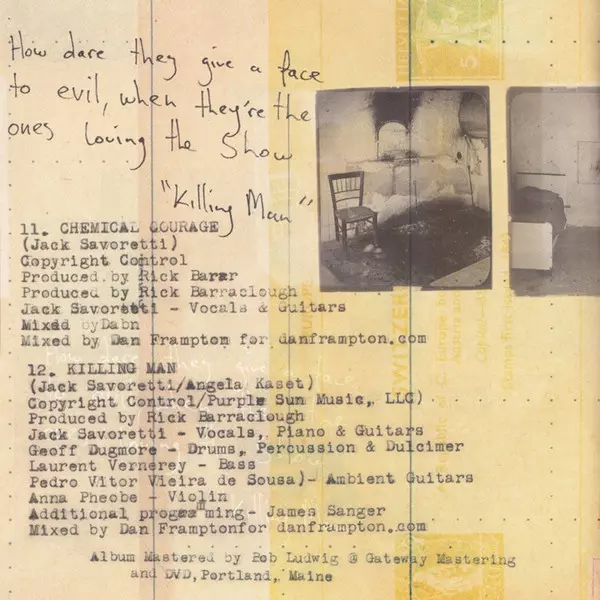 How dare they give a face
to evil, when they're the
ones loving the show
"Killing Man"
11. CHEMICAL COURAGE
(Jack Savoretti)
Copyright Control
Produced by Rick Barar
Produced by Rick Barraclough
Jack Savoretti - Vocals & Guitars
Mixed oyDabn
Mixed by Dan Frampton for danframpton.com
12. KILLING MAN
(Jack Savoretti/Angela Kaset)
Copyright Control/Purple Sun Music, LLC)
Produced by Rick Barraclough
Jack Savoretti - Vocals, Piano & Guitars
Geoff Dugmore - Drums, Percussion & Dulcimer
Laurent Vernerey - Bass
Pedro Vitor Vieira de Sousa)- Ambient Guitars
Anna Pheobe - Violin
Additional programming- James Sanger
Mixed by Dan Framptonfor danframpton.com
Album Mastered by Bob Ludwig @ Gateway Mastering
and DVD, Portland, Maine
HELVETIA
SWITZERLAND